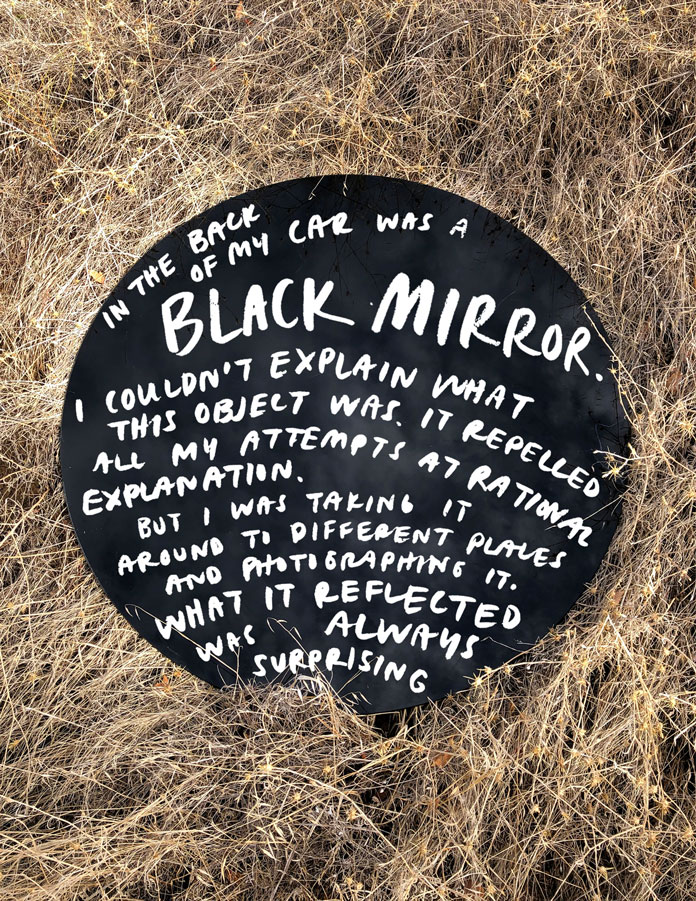 IN THE BACK
OF MY CAR WAS A
BLACK MIRROR.
I COULDN'T EXPLAIN WHAT
THIS OBJECT WAS. IT REPELLED
ALL MY ATTEMPTS AT RATIONAL
EXPLANATION.
BUT I WAS TAKING IT
AROUND TO DIFFERENT PLACES
AND PHOTOGRAPHING IT.
WHAT IT REFLECTED
WAS ALWAYS
SURPRISING